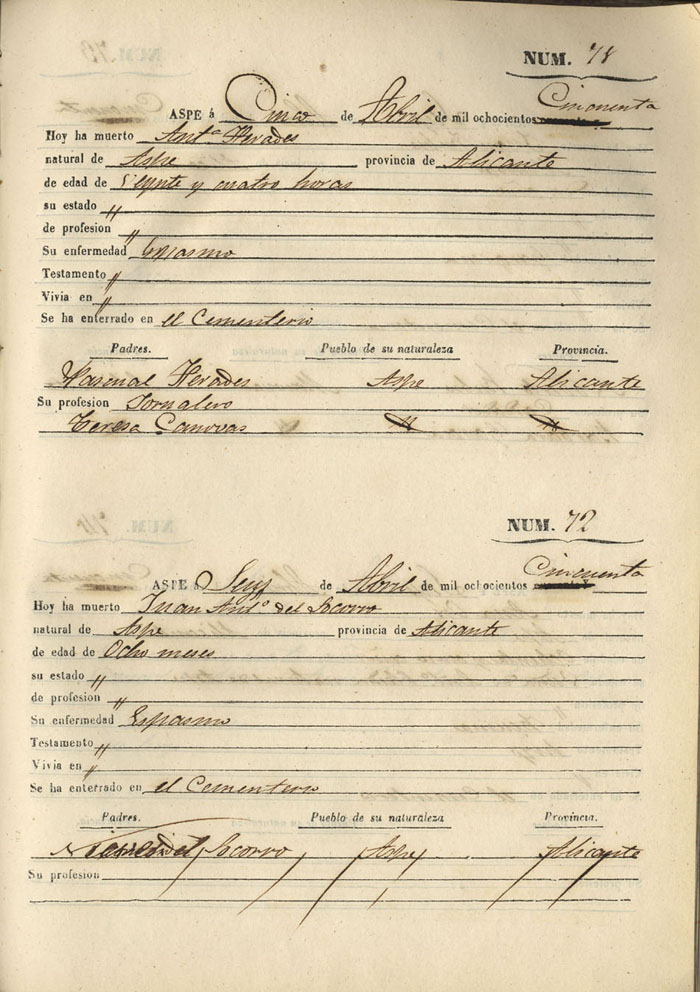 NUM. 71
ASPE á Cinco de Abril de mil ochocientos CinCuenta
Hoy ha muerto Antª Perades
natural de Aspe provincia de Alicante
de edad de Veynte y cuatro horas
su estado "
de profesion "
Su enfermedad Espasmo
Testamento "
Vivia en "
Se ha enterrado en el Cementerio
Padres. Pueblo de su naturaleza Provincia.
Pascual Perades Aspe Alicante
Su profesion Jornalero
Teresa Canovas
NUM. 72
ASPE á Seys de Abril de mil ochocientos Cincuenta
Hoy ha muerto Juan Antº del Socorro
natural de Aspe provincia de Alicante
de edad de Ocho meses
su estado "
de profesion "
Su enfermedad Espasmo
Testamento "
Vivia en "
Se ha enterrado en el Cementerio
Padres. Pueblo de su naturaleza Provincia.
del Socorro Aspe Alicante
Su profesion